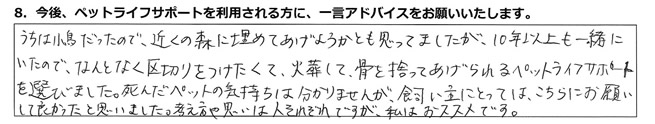 8．今後、ペットライフサポートを利用される方に、一言アドバイスをお願いいたします。
うちは小鳥だったので、近くの森に埋めてあげようかとも思ってましたが、10年以上も一緒に
いたので、なんとなく区切りをつけたくて、火葬して、骨を拾ってあげられるペットライフサポート
を選びました。死んだペットの気持ちは分かりませんが、飼い主にとっては、こちらにお願い
して良かったと思いました。考え方や思いは人それぞれですが、私はおススメです。